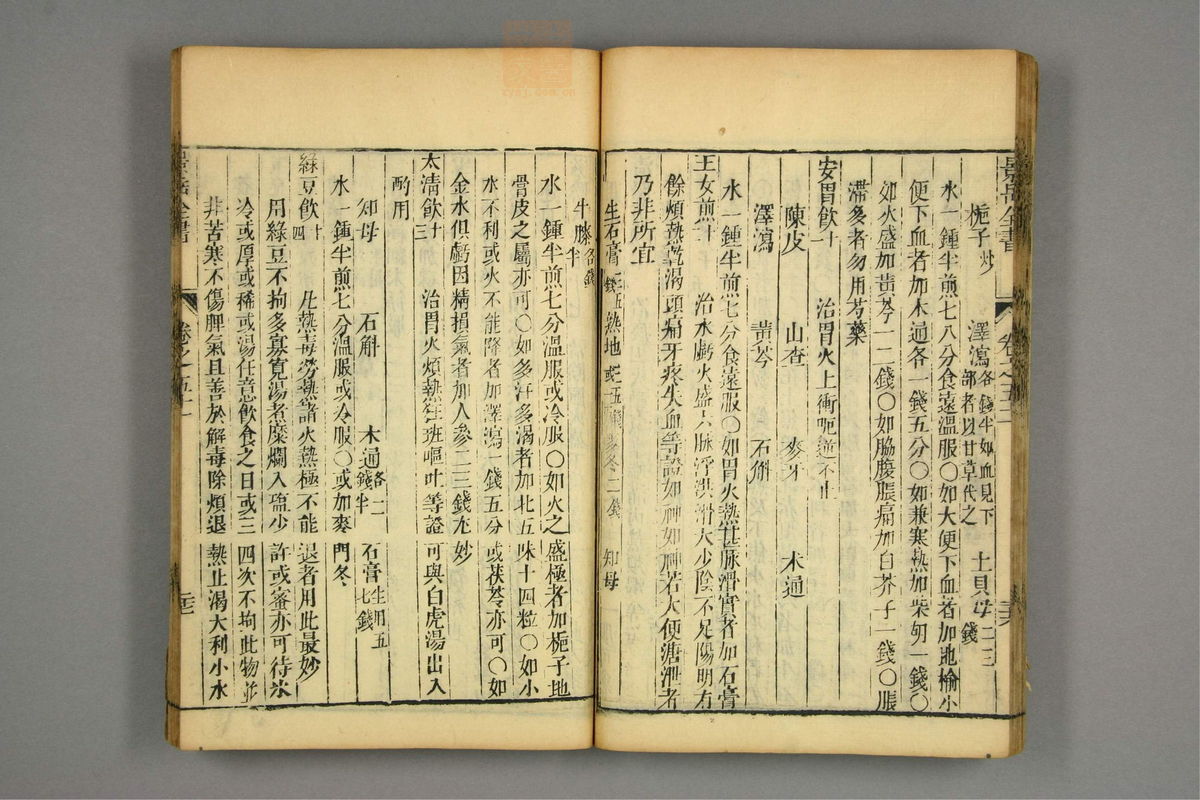 景岳全書 卷之五十一
梔子炒 澤瀉各錢半如血見下部者以甘草代之 土貝母二三錢
水一鍾半煎七八分食遠溫服〇如大便下血者加地榆小
便下血者加木通各一錢五分〇如兼寒熱加柴胡一錢〇
如火盛加黃芩一二錢〇如脇腹脹痛加白芥子一錢〇脹
滯多者勿用芍藥
安胃飲十一 治胃火上衝呃逆不止
陳皮 山查 麥芽 木通
澤瀉 黃芩 石斛
水一鍾半煎七分食遠服〇如胃火熱甚脈滑實者加石膏
玉女煎十二 治水虧火盛六脈浮洪滑大少陰不足陽明有
餘煩熱乾渴頭痛牙疼失血等證如神如神若大便溏泄者
乃非所宜
生石膏三五錢 熟地三五錢或一兩 麥冬二錢 知母
牛膝各錢半
水一鍾半煎七分溫服或冷服〇如火之盛極者加梔子地
骨皮之屬亦可〇如多汗多渴者加北五味十四粒〇如小
水不利或火不能降者加澤瀉一錢五分或茯苓亦可〇如
金水俱虧因精損氣者加人參二三錢尤妙
太清飲十三 治胃火煩熱狂斑嘔吐等證可與白虎湯出入
酌用
知母 石斛 木通各一錢半 石膏生用五七錢
水一鍾半煎七分溫服或冷服〇或加麥門冬
綠豆飲十四 凡熱毒勞熱諸火熱極不能退者用此最妙
用綠豆不拘多寡寬湯煮糜爛入鹽少許或蜜亦可待冰
冷或厚或稀或湯任意飲食之日或三四次不拘此物並
非苦寒不傷脾氣且善於解毒除煩退熱止渴大利小水
景岳全書 卷之五十一